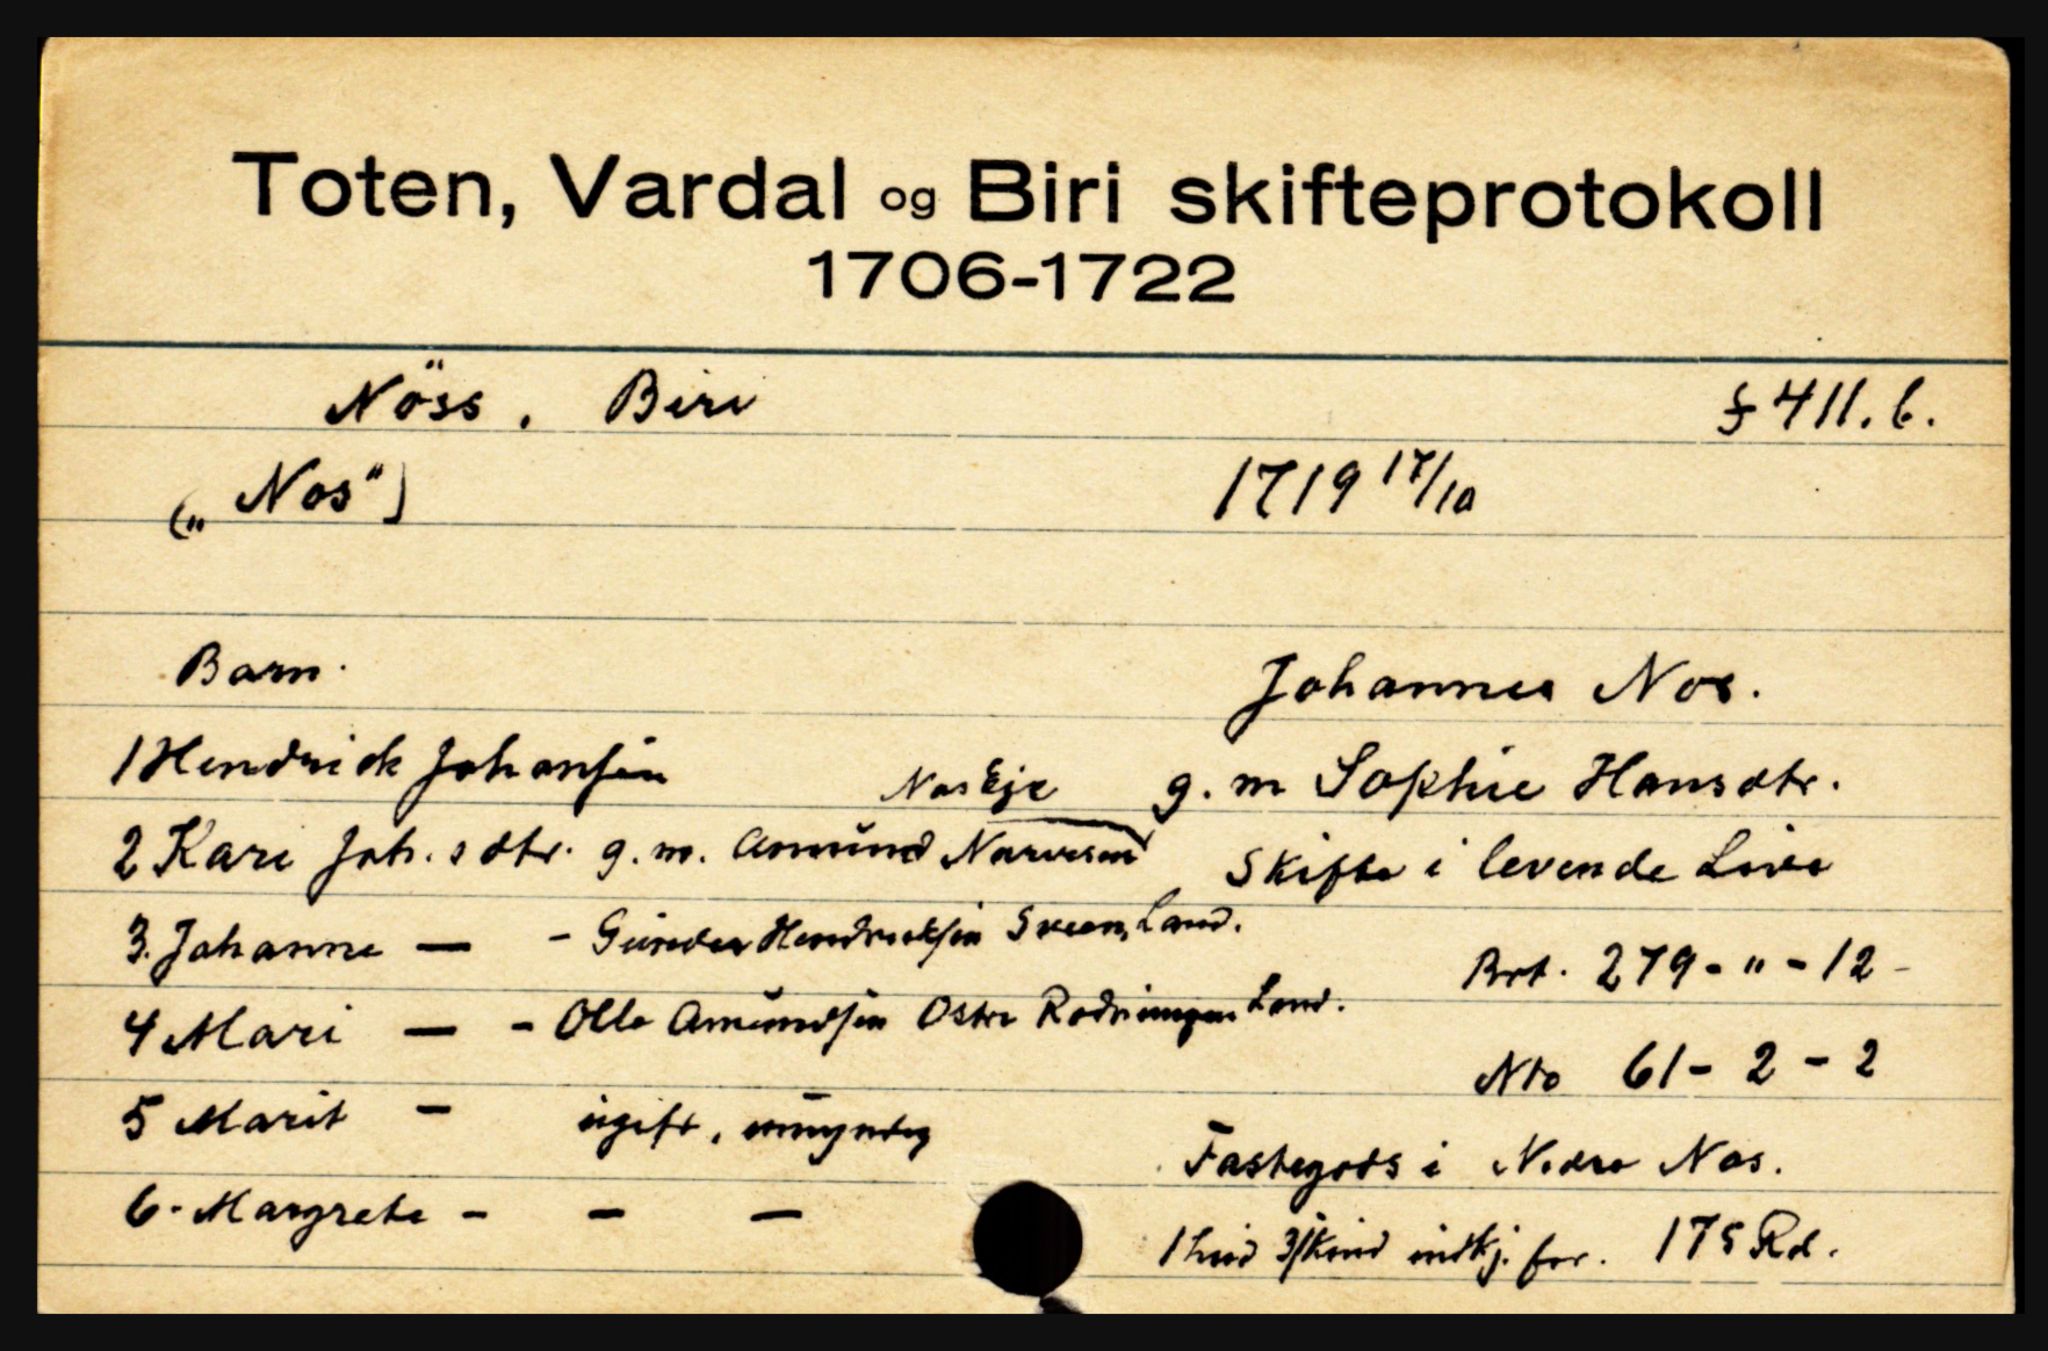 Toten, Vardal og Biri skifteprotokoll
1706-1722
Nöss, Biri
f 411. b.
(„Nos")
1719 17/10
Barn.
Johannes Nos.
1 Hendrick Johansen
g. m Sophie Hansdtr.
Nos Eje
2 Kari Joh.sdtr. g. m. Amund Narvesen
Skifte i levende Live
3. Johanne — - Hendricksen Sveen, Land.
Brt. 279 - " - 12 -
4 Mari — - Olle Amundsen Ostre Land.
Nto 61 - 2 - 2
5 Marit - ugift, umyndig
Fastegods i Nedre Nos.
6. Margrete - - -
1 hud 3 skind indkj. for. 175 Rd.